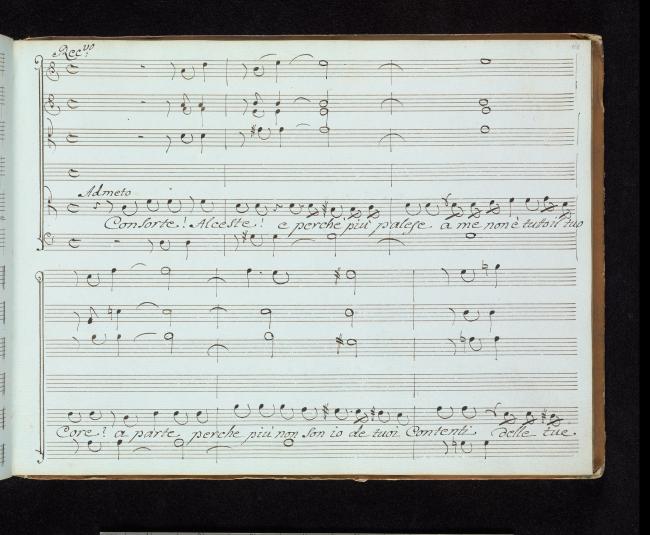 Rec.vo
Admeto
Consorte! Alceste! e perchè più palese a me non è tutto il tuo
Core? a parte perche più non son io de tuoi Contenti delle tue